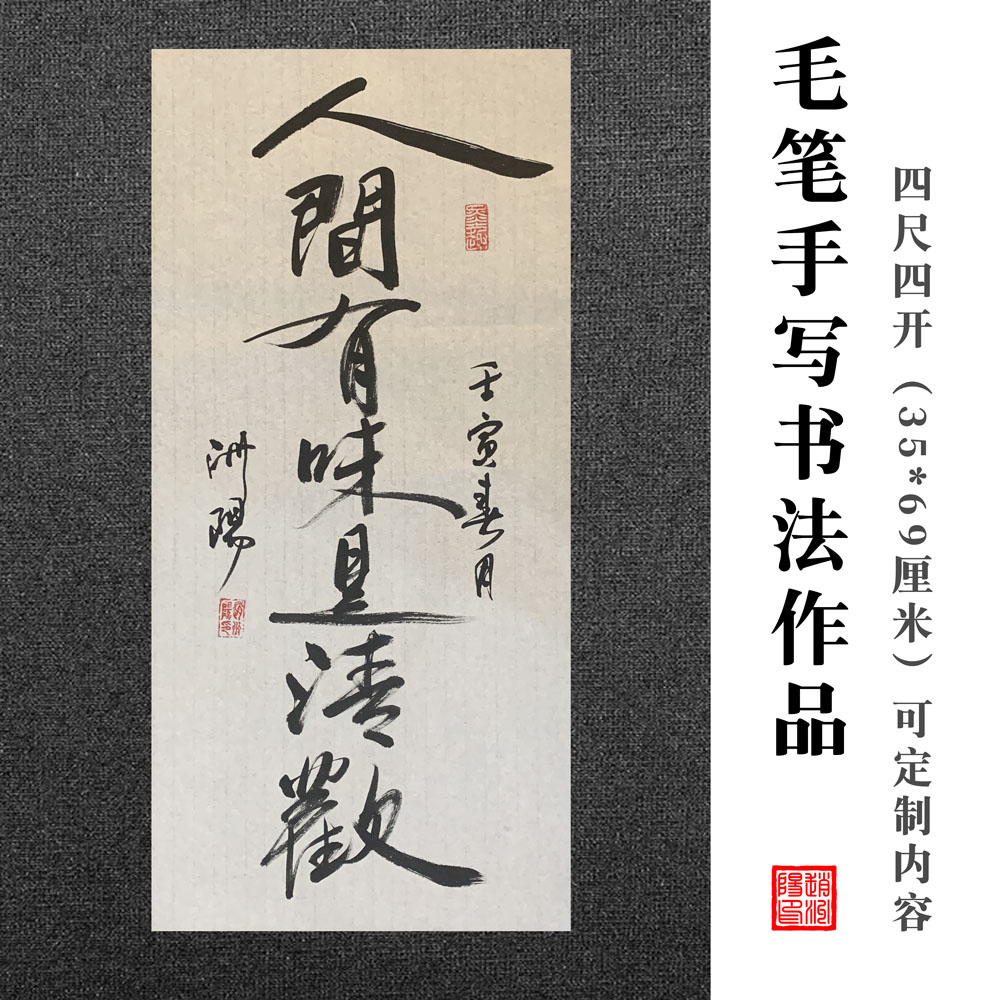 毛笔手写书法作品
四尺四开（35*69厘米）可定制内容
人間有味是清歡
壬寅春月
洲陽